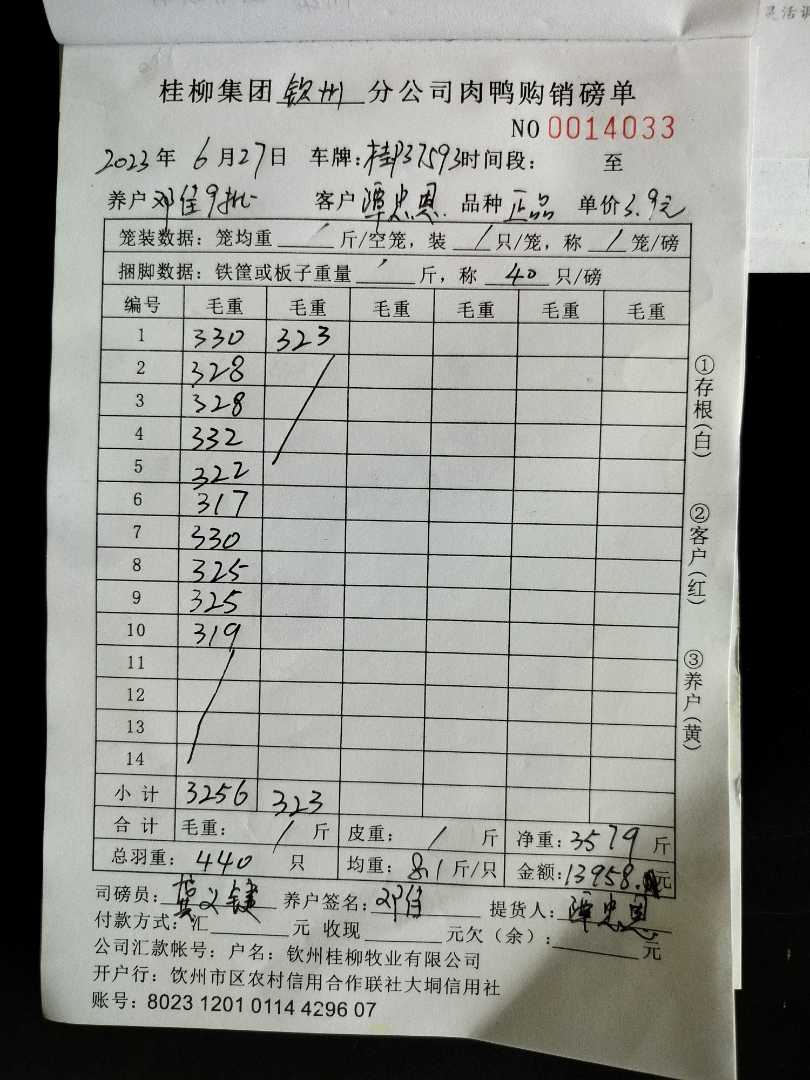 灵活调
桂柳集团 钦州 分公司肉鸭购销磅单
NO 0014033
2023 年 6 月 27 日 车牌: 桂P37593 时间段: 至
养户 邓佳9批 客户 覃忠恩 品种 正品 单价 3.9元
笼装数据: 笼均重 / 斤/空笼, 装 / 只/笼, 称 / 笼/磅
捆脚数据: 铁筐或板子重量 / 斤, 称 40 只/磅
编号 毛重 毛重 毛重 毛重 毛重 毛重
1 330 323
2 328
3 328
4 332
5 322
6 317
7 330
8 325
9 325
10 319
11
12
13
14
小计 3256 323
合计 毛重: / 斤 皮重: / 斤 净重: 3579 斤
总羽重: 440 只 均重: 8.1 斤/只 金额: 13958. 元
司磅员: 义键 养户签名: 邓佳 提货人: 覃忠恩
付款方式: 汇 元 收现 元欠(余): 元
公司汇款帐号: 户名: 钦州桂柳牧业有限公司
开户行: 钦州市区农村信用合作联社大垌信用社
账号: 8023 1201 0114 4296 07
①存根(白)
②客户(红)
③养户(黄)